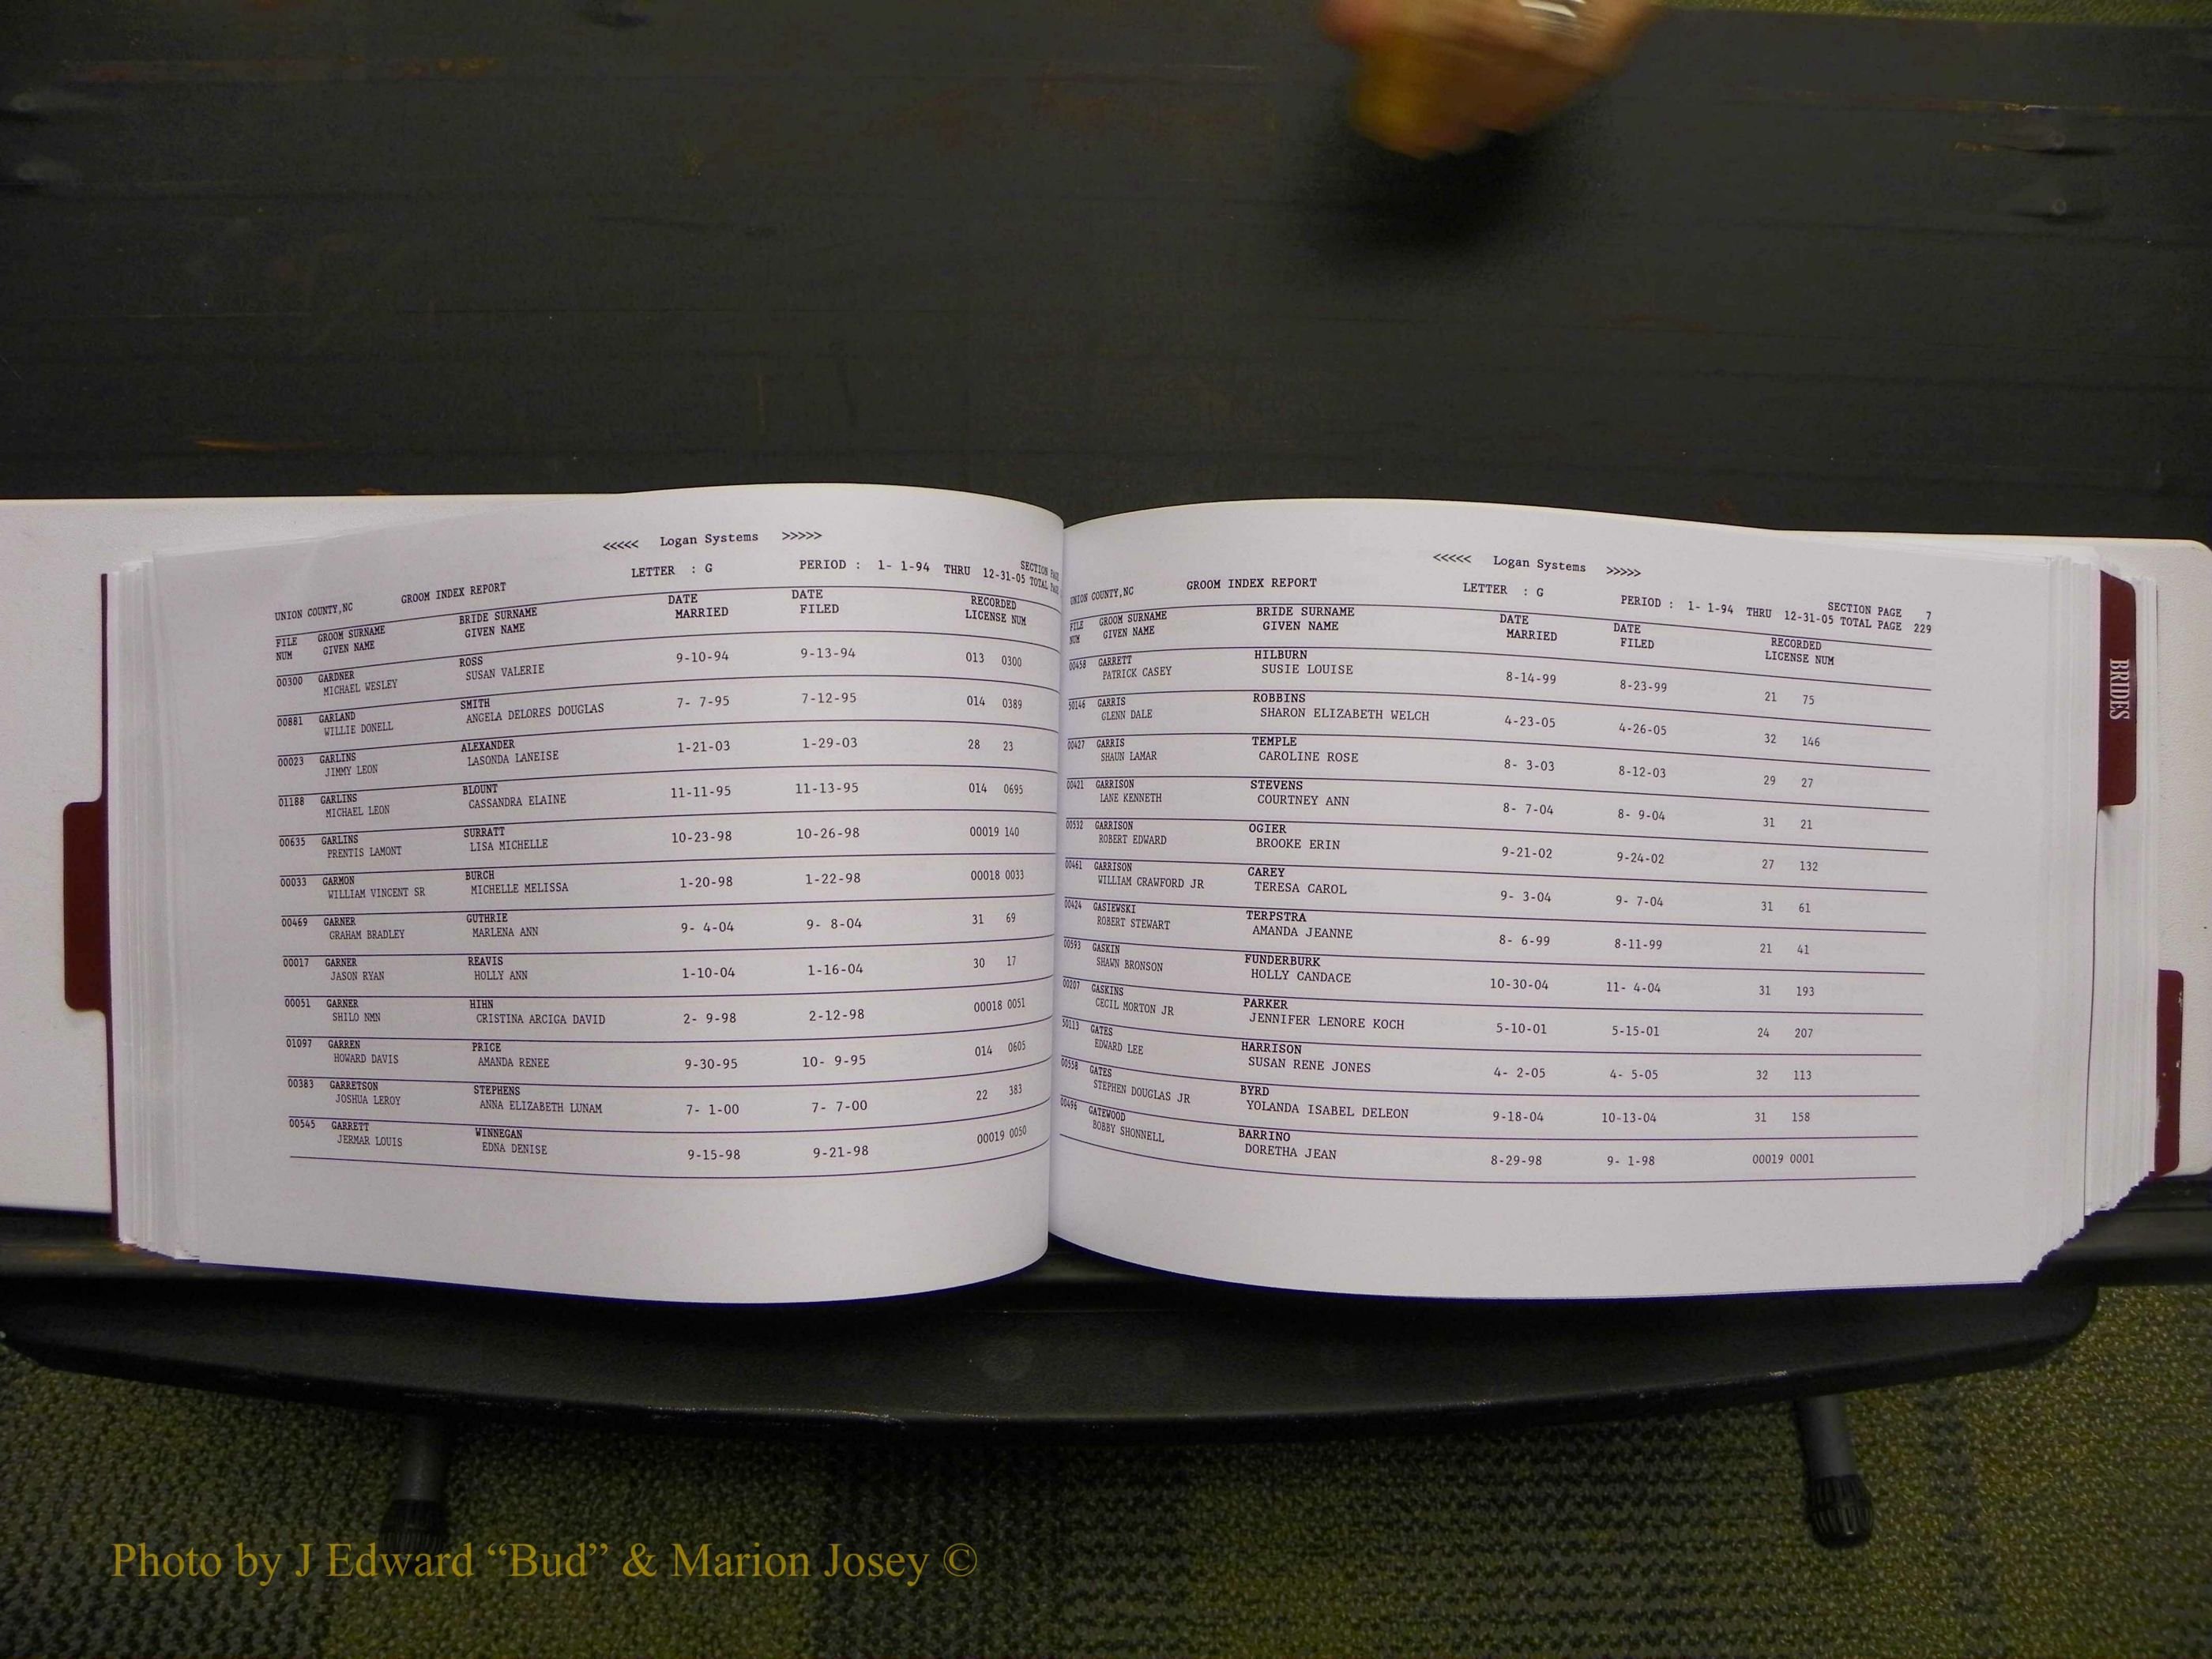 <<<<< Logan Systems >>>>>
LETTER : G PERIOD : 1- 1-94 THRU 12-31-05 SECTION PAGE
TOTAL PAGE
UNION COUNTY,NC GROOM INDEX REPORT
FILE GROOM SURNAME BRIDE SURNAME DATE DATE RECORDED
NUM GIVEN NAME GIVEN NAME MARRIED FILED LICENSE NUM
00300 GARDNER ROSS 9-10-94 9-13-94 013 0300
MICHAEL WESLEY SUSAN VALERIE
00881 GARLAND SMITH 7- 7-95 7-12-95 014 0389
WILLIE DONELL ANGELA DELORES DOUGLAS
00023 GARLINS ALEXANDER 1-21-03 1-29-03 28 23
JIMMY LEON LASONDA LANEISE
01188 GARLINS BLOUNT 11-11-95 11-13-95 014 0695
MICHAEL LEON CASSANDRA ELAINE
00635 GARLINS SURRATT 10-23-98 10-26-98 00019 140
PRENTIS LAMONT LISA MICHELLE
00033 GARMON BURCH 1-20-98 1-22-98 00018 0033
WILLIAM VINCENT SR MICHELLE MELISSA
00469 GARNER GUTHRIE 9- 4-04 9- 8-04 31 69
GRAHAM BRADLEY MARLENA ANN
00017 GARNER REAVIS 1-10-04 1-16-04 30 17
JASON RYAN HOLLY ANN
00051 GARNER HIHN 2- 9-98 2-12-98 00018 0051
SHILO NMN CRISTINA ARCIGA DAVID
01097 GARREN PRICE 9-30-95 10- 9-95 014 0605
HOWARD DAVIS AMANDA RENEE
00383 GARRETSON STEPHENS 7- 1-00 7- 7-00 22 383
JOSHUA LEROY ANNA ELIZABETH LUNAM
00545 GARRETT WINNEGAN 9-15-98 9-21-98 00019 0050
JERMAR LOUIS EDNA DENISE
<<<<< Logan Systems >>>>>
UNION COUNTY,NC GROOM INDEX REPORT LETTER : G PERIOD : 1- 1-94 THRU 12-31-05 SECTION PAGE 7
TOTAL PAGE 229
FILE GROOM SURNAME BRIDE SURNAME DATE DATE RECORDED
NUM GIVEN NAME GIVEN NAME MARRIED FILED LICENSE NUM
00458 GARRETT HILBURN 8-14-99 8-23-99 21 75
PATRICK CASEY SUSIE LOUISE
50146 GARRIS ROBBINS 4-23-05 4-26-05 32 146
GLENN DALE SHARON ELIZABETH WELCH
00427 GARRIS TEMPLE 8- 3-03 8-12-03 29 27
SHAUN LAMAR CAROLINE ROSE
00421 GARRISON STEVENS 8- 7-04 8- 9-04 31 21
LANE KENNETH COURTNEY ANN
00532 GARRISON OGIER 9-21-02 9-24-02 27 132
ROBERT EDWARD BROOKE ERIN
00461 GARRISON CAREY 9- 3-04 9- 7-04 31 61
WILLIAM CRAWFORD JR TERESA CAROL
00424 GASIEWSKI TERPSTRA 8- 6-99 8-11-99 21 41
ROBERT STEWART AMANDA JEANNE
00593 GASKIN FUNDERBURK 10-30-04 11- 4-04 31 193
SHAWN BRONSON HOLLY CANDACE
00207 GASKINS PARKER 5-10-01 5-15-01 24 207
CECIL MORTON JR JENNIFER LENORE KOCH
50113 GATES HARRISON 4- 2-05 4- 5-05 32 113
EDWARD LEE SUSAN RENE JONES
00558 GATES BYRD 9-18-04 10-13-04 31 158
STEPHEN DOUGLAS JR YOLANDA ISABEL DELEON
00496 GATEWOOD BARRINO 8-29-98 9- 1-98 00019 0001
BOBBY SHONNELL DORETHA JEAN
BRIDES
Photo by J Edward “Bud” & Marion Josey ©